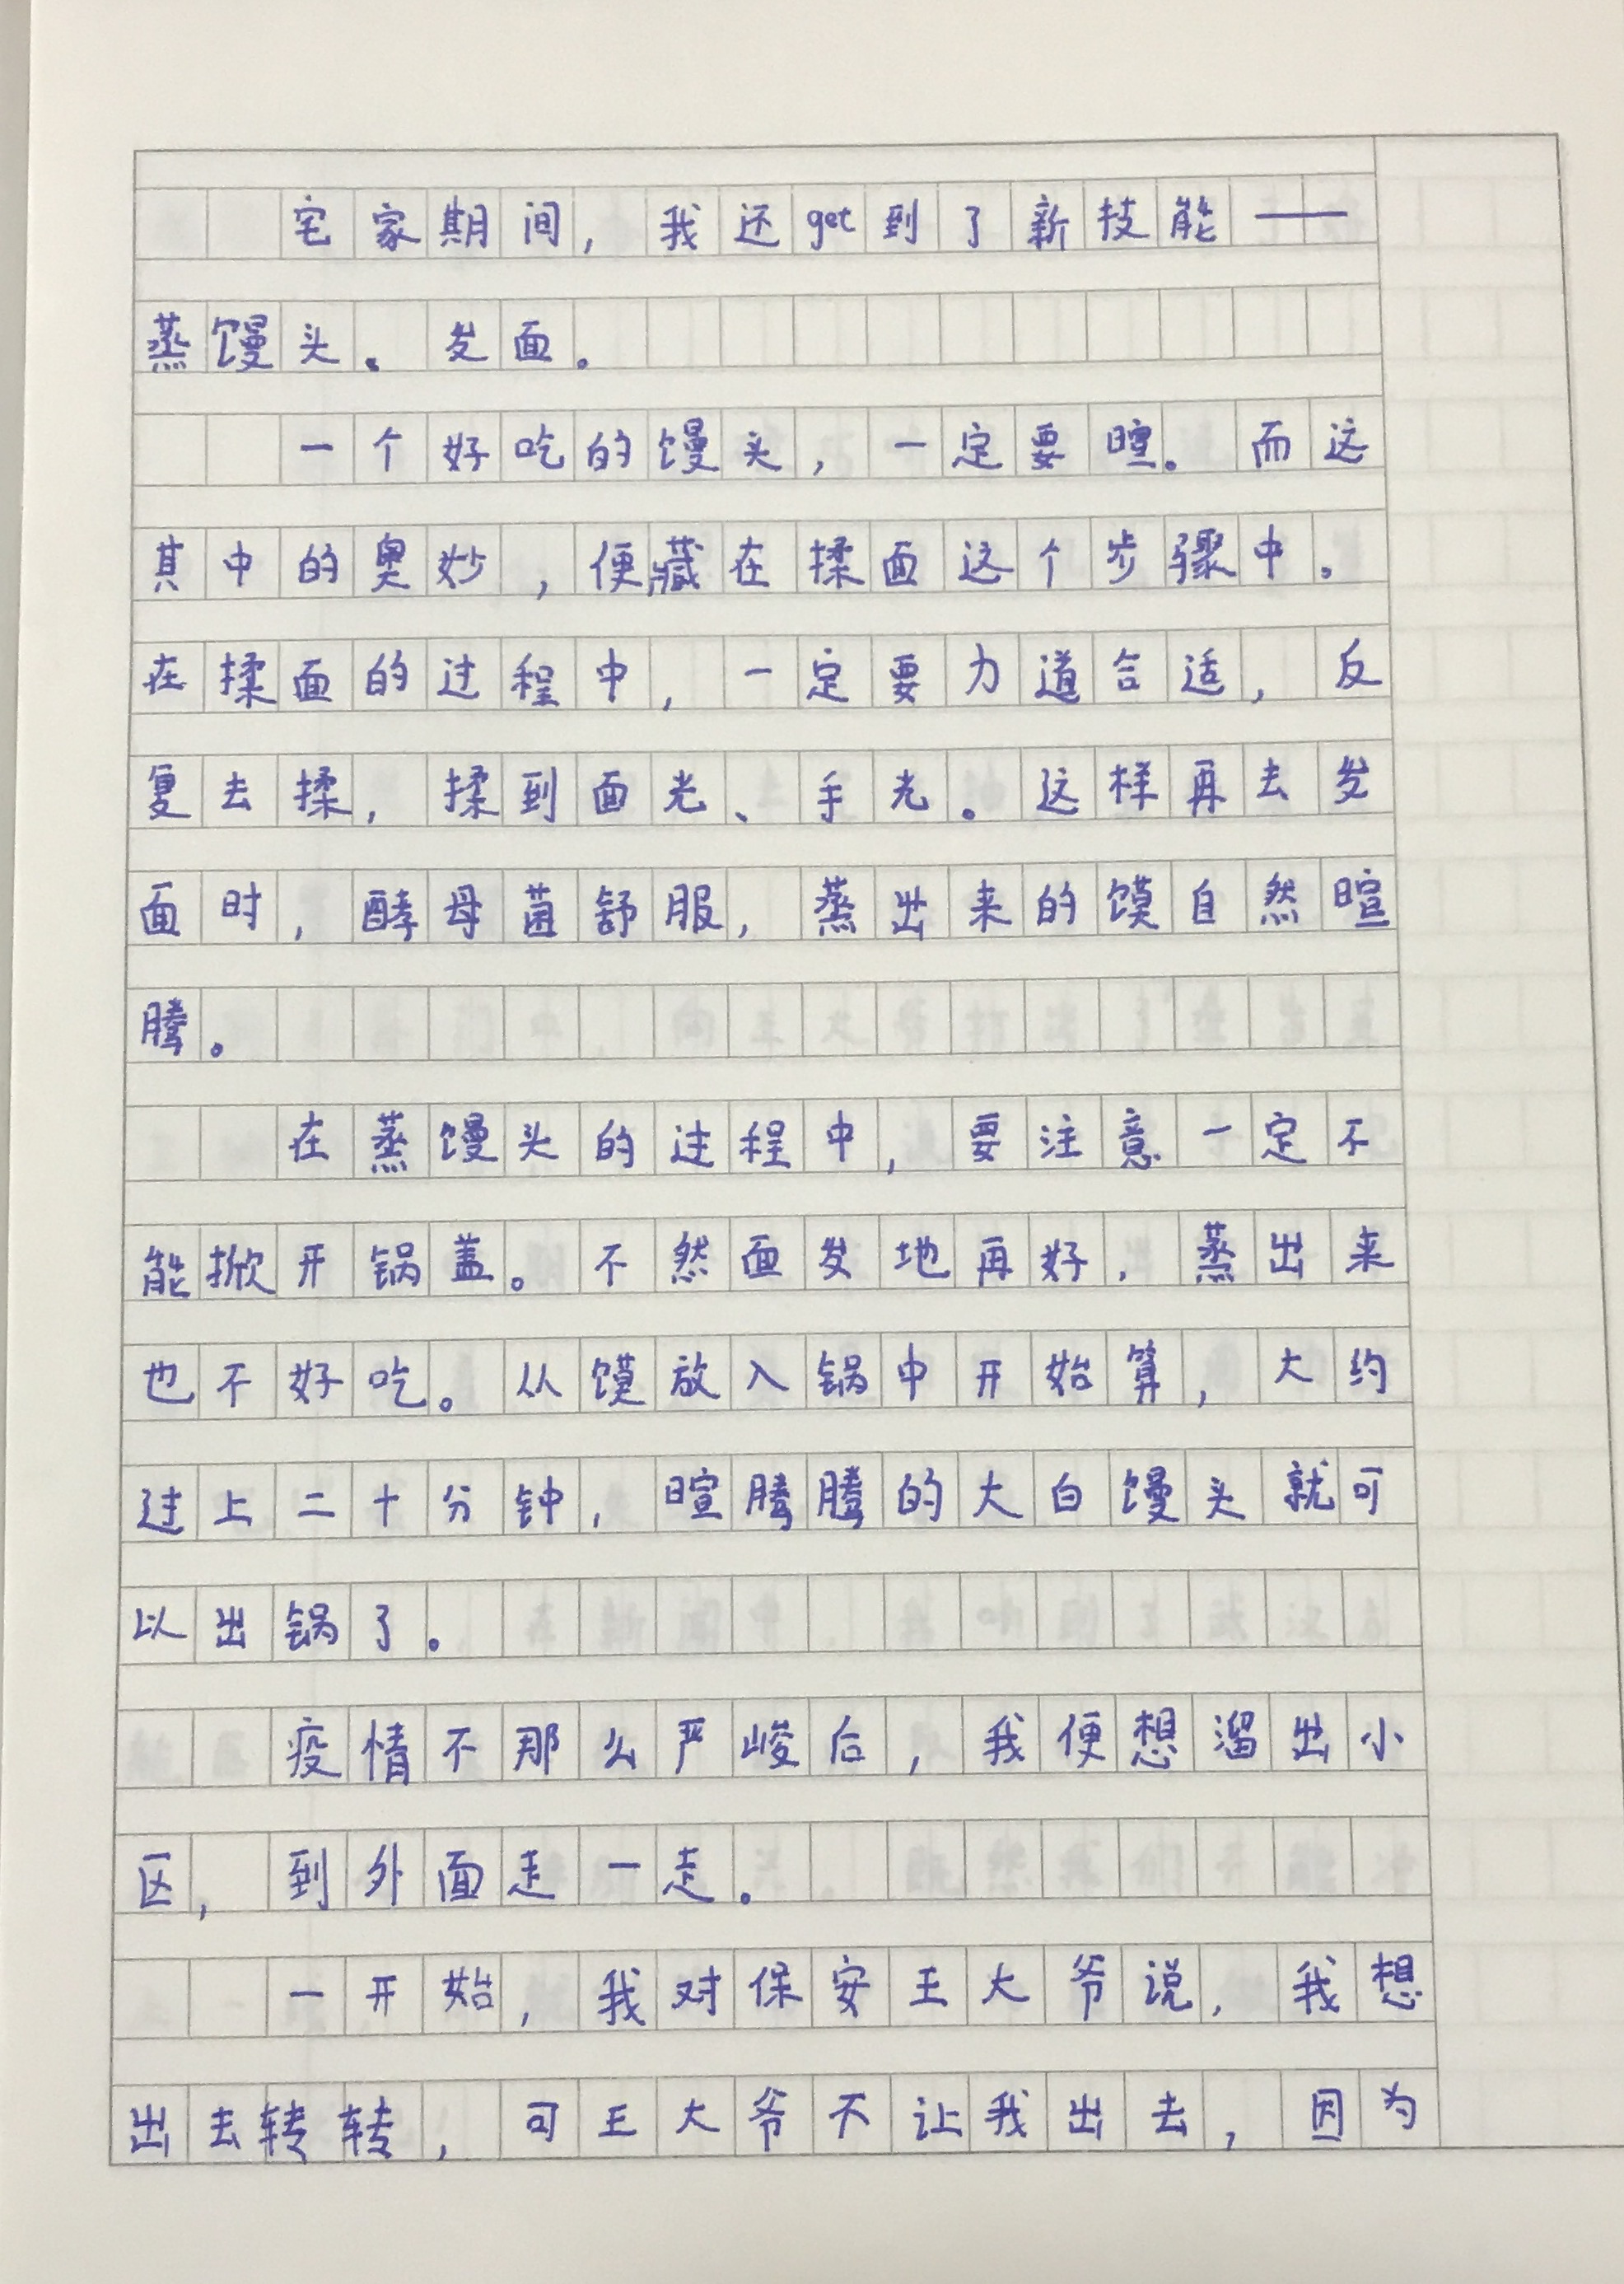 宅家期间，我还get到了新技能——
蒸馒头、发面。
一个好吃的馒头，一定要暄。而这
其中的奥妙，便藏在揉面这个步骤中。
在揉面的过程中，一定要力道合适，反
复去揉，揉到面光、手光。这样再去发
面时，酵母菌舒服，蒸出来的馍自然暄
腾。
在蒸馒头的过程中，要注意一定不
能掀开锅盖。不然面发地再好，蒸出来
也不好吃。从馍放入锅中开始算，大约
过上二十分钟，暄腾腾的大白馒头就可
以出锅了。
疫情不那么严峻后，我便想溜出小
区，到外面走一走。
一开始，我对保安王大爷说，我想
出去转转，可王大爷不让我出去，因为